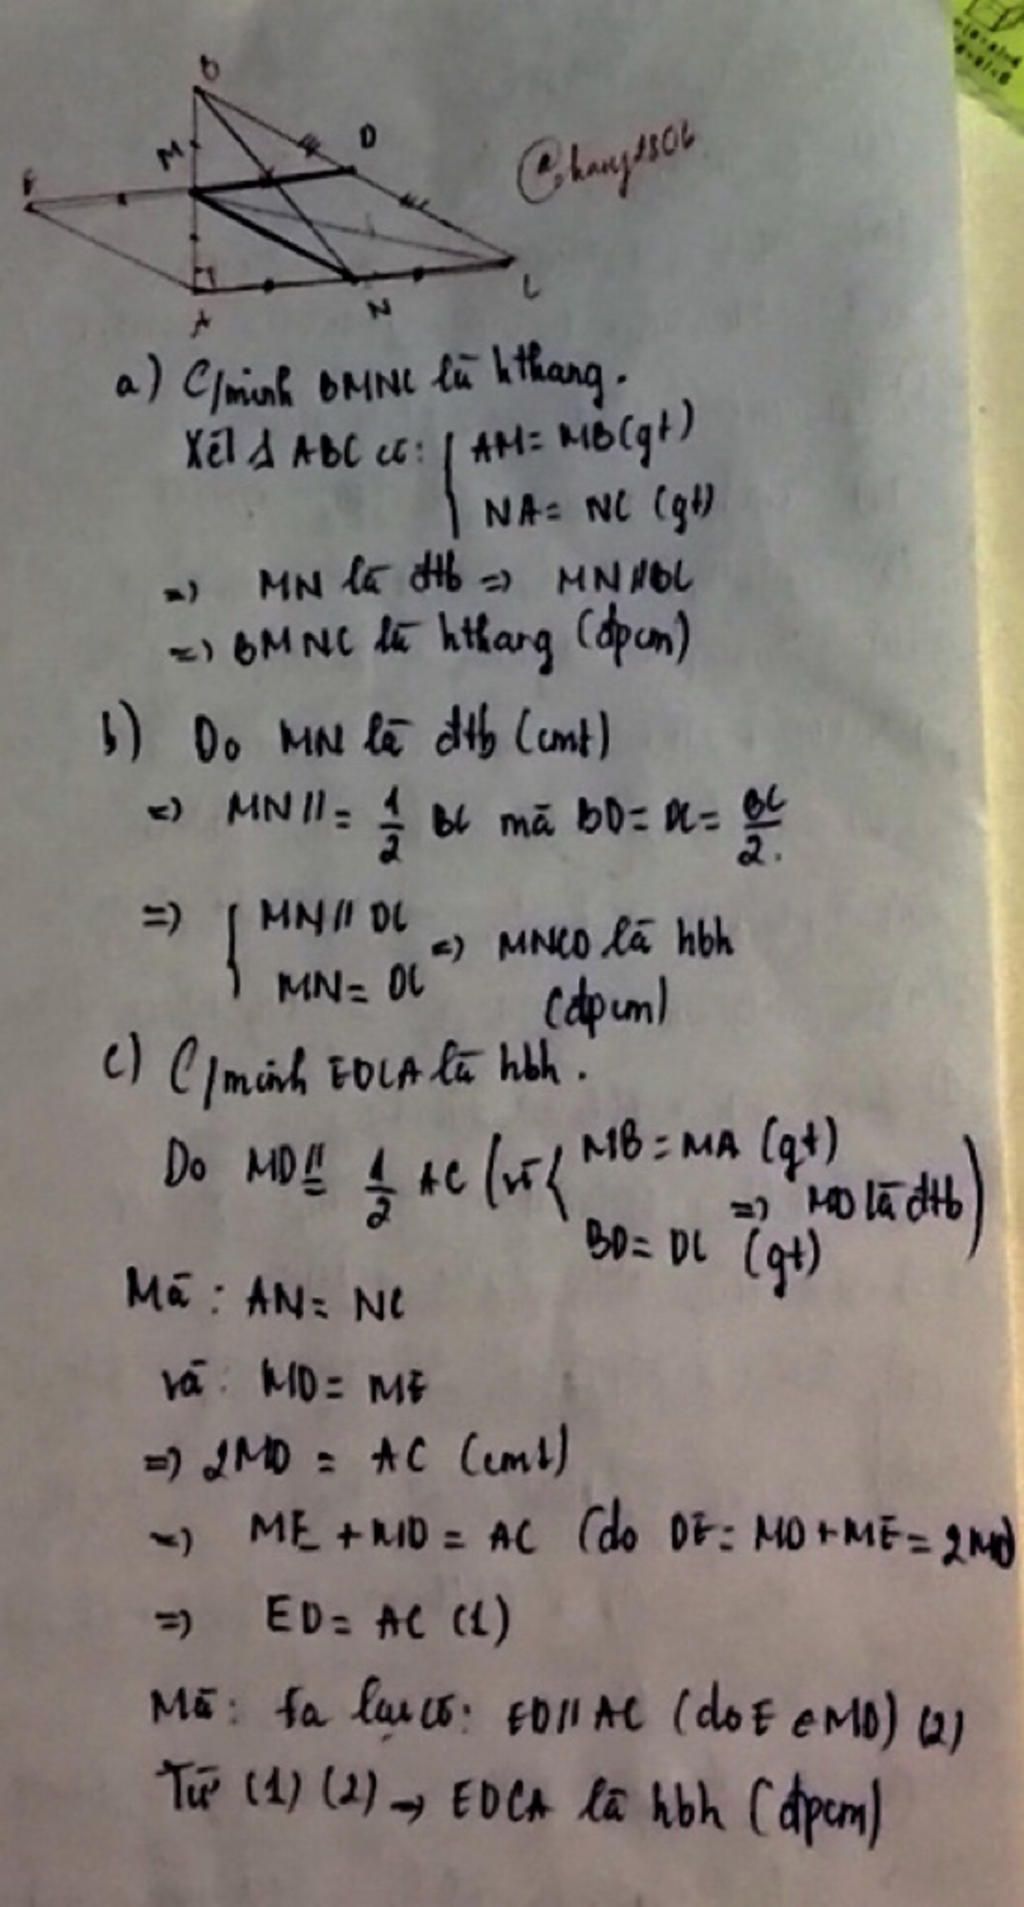 B
M
D
E
A
N
C
@hang1306
a) C/minh BMNC là hthang.
Xét Δ ABC có: { AM = MB (gt)
NA = NC (gt)
=> MN là đtb => MN // BC
=> BMNC là hthang (đpcm)
b) Do MN là đtb (cmt)
=> MN // = 1/2 BC mà BD = DC = BC/2.
=> { MN // DC
MN = DC => MNCD là hbh
(đpcm)
c) C/minh EDCA là hbh.
Do MD // = 1/2 AC (vì { MB = MA (gt)
BD = DC (gt) => MD là đtb)
Mà : AN = NC
và : MD = ME
=> 2MD = AC (cmt)
=> ME + MD = AC (do DE = MD + ME = 2MD)
=> ED = AC (1)
Mà : ta lại có : ED // AC (do E ∈ MD) (2)
Từ (1) (2) → EDCA là hbh (đpcm)